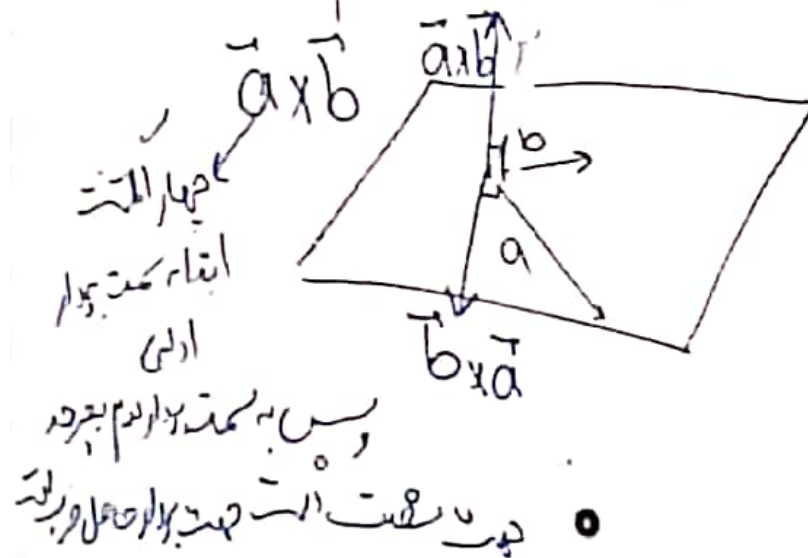 a⃗×b⃗
a⃗×b⃗
b
a
b⃗×a⃗
چهار انگشت
ابتدا به سمت بردار
اولی
سپس به سمت بردار دوم بچرخد
جهت شست جهت بردار حاصل